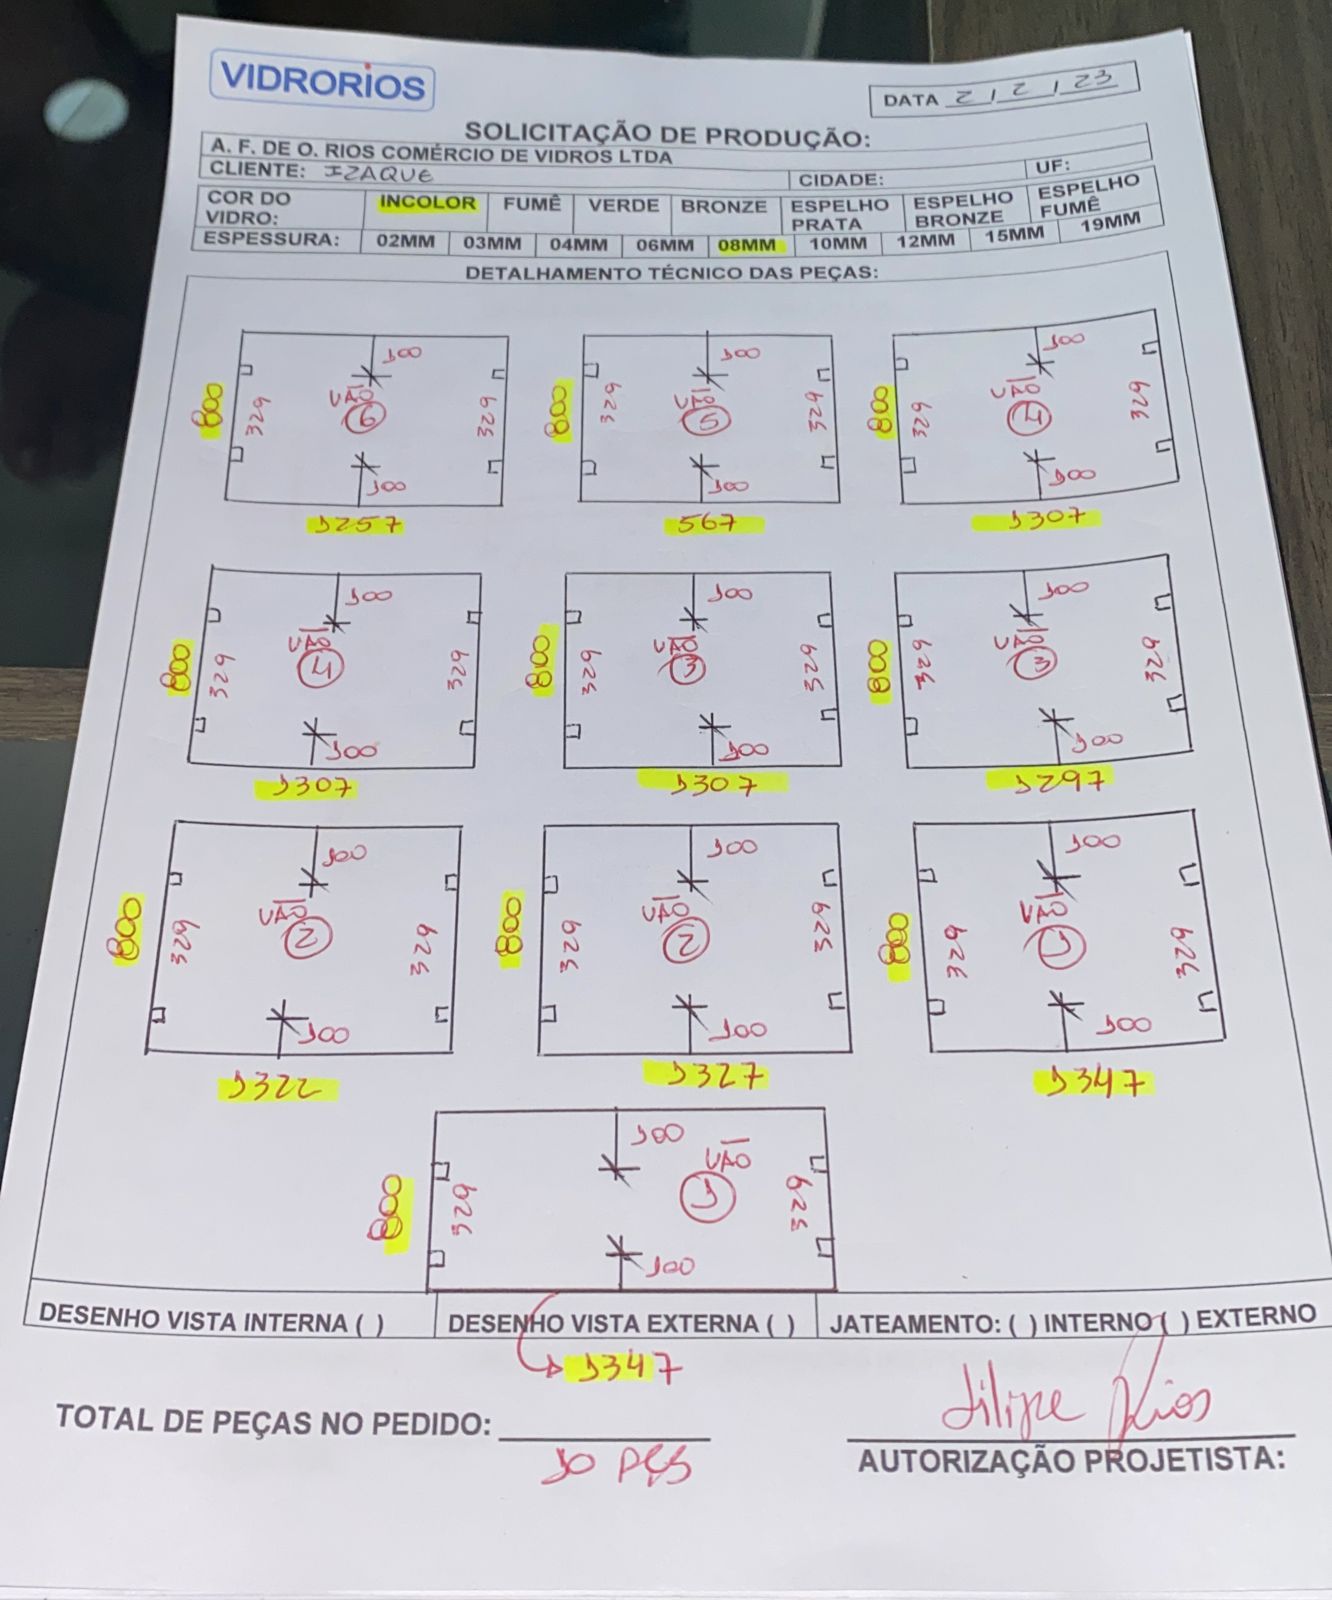 VIDRORIOS
DATA 2 / 2 / 23
SOLICITAÇÃO DE PRODUÇÃO:
A. F. DE O. RIOS COMÉRCIO DE VIDROS LTDA
CLIENTE: IZAQUE CIDADE: UF:
COR DO VIDRO: INCOLOR FUMÊ VERDE BRONZE ESPELHO PRATA ESPELHO BRONZE ESPELHO FUMÊ
ESPESSURA: 02MM 03MM 04MM 06MM 08MM 10MM 12MM 15MM 19MM
DETALHAMENTO TÉCNICO DAS PEÇAS:
100 100 100
800 329 VÃO 6 329 800 329 VÃO 5 329 800 329 VÃO 4 329
100 100 100
1257 567 1307
100 100 100
800 329 VÃO 4 329 800 329 VÃO 3 329 800 329 VÃO 3 329
100 100 100
1307 1307 1297
100 100 100
800 329 VÃO 2 329 800 329 VÃO 2 329 800 329 VÃO 1 329
100 100 100
1322 1327 1347
100
800 329 VÃO 1 329
100
DESENHO VISTA INTERNA ( ) DESENHO VISTA EXTERNA ( ) JATEAMENTO: ( ) INTERNO ( ) EXTERNO
1347
TOTAL DE PEÇAS NO PEDIDO:
10 PÇS
Filipe Rios
AUTORIZAÇÃO PROJETISTA: